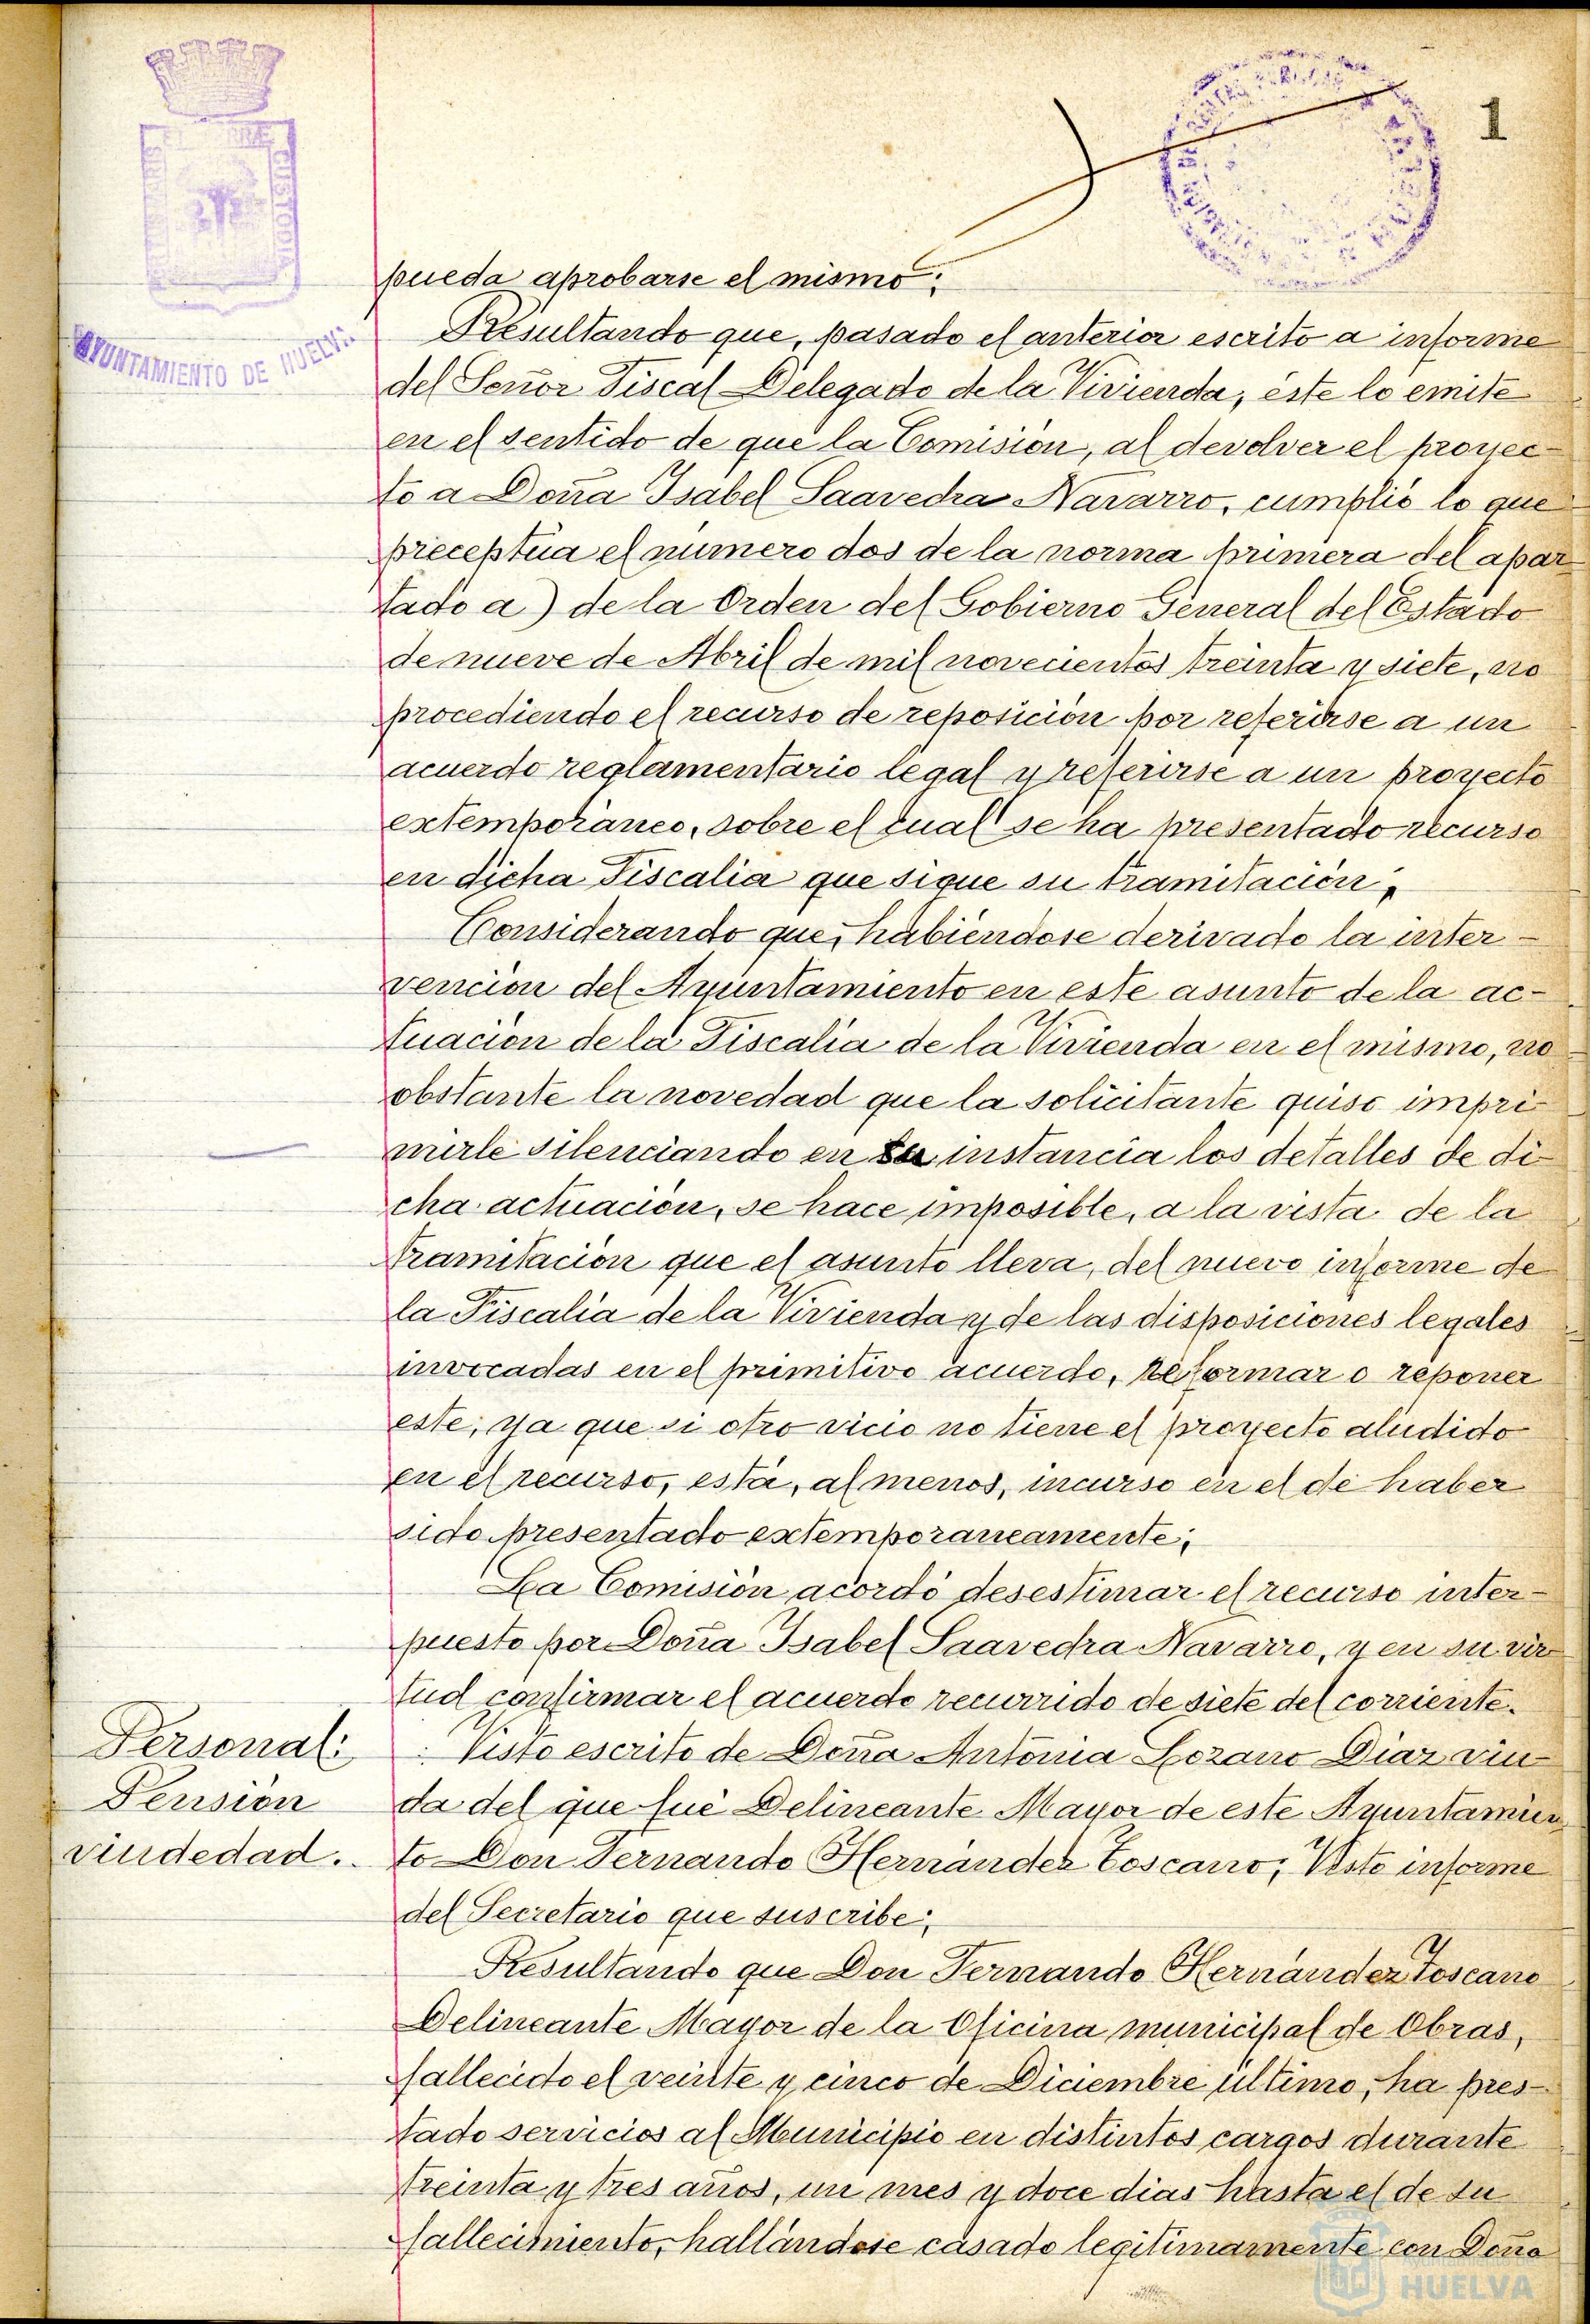 1
AYUNTAMIENTO DE HUELVA
pueda aprobarse el mismo;
Resultando que, pasado el anterior escrito a informe
del Señor Fiscal Delegado de la Vivienda, éste lo emite
en el sentido de que la Comisión, al devolver el proyec-
to a Doña Isabel Saavedra Navarro, cumplió lo que
preceptúa el número dos de la norma primera del apar-
tado a) de la Orden del Gobierno General del Estado
de nueve de Abril de mil novecientos treinta y siete, no
procediendo el recurso de reposición por referirse a un
acuerdo reglamentario legal y referirse a un proyecto
extemporáneo, sobre el cual se ha presentado recurso
en dicha Fiscalia que sigue su tramitación;
Considerando que, habiéndose derivado la inter-
vención del Ayuntamiento en este asunto de la ac-
tuación de la Fiscalía de la Vivienda en el mismo, no
obstante la novedad que la solicitante quiso impri-
mirle silenciando en su instancia los detalles de di-
cha actuación, se hace imposible, a la vista de la
tramitación que el asunto lleva, del nuevo informe de
la Fiscalía de la Vivienda y de las disposiciones legales
invocadas en el primitivo acuerdo, reformar o reponer
este; ya que si otro vicio no tiene el proyecto aludido
en el recurso, está, al menos, incurso en el de haber
sido presentado extemporaneamente;
La Comisión acordó desestimar el recurso inter-
puesto por Doña Isabel Saavedra Navarro, y en su vir
tud confirmar el acuerdo recurrido de siete del corriente.
Personal:
Pensión
viudedad.
Visto escrito de Doña Antonia Lozano Díaz viu-
da del que fué Delineante Mayor de este Ayuntamien
to Don Fernando Hernández Toscano; Visto informe
del Secretario que suscribe;
Resultando que Don Fernando Hernández Toscano
Delineante Mayor de la Oficina municipal de Obras,
fallecido el veinte y cinco de Diciembre último, ha pres-
tado servicios al Municipio en distintos cargos durante
treinta y tres años, un mes y doce dias hasta el de su
fallecimiento, hallándose casado legitimamente con Doña
HUELVA